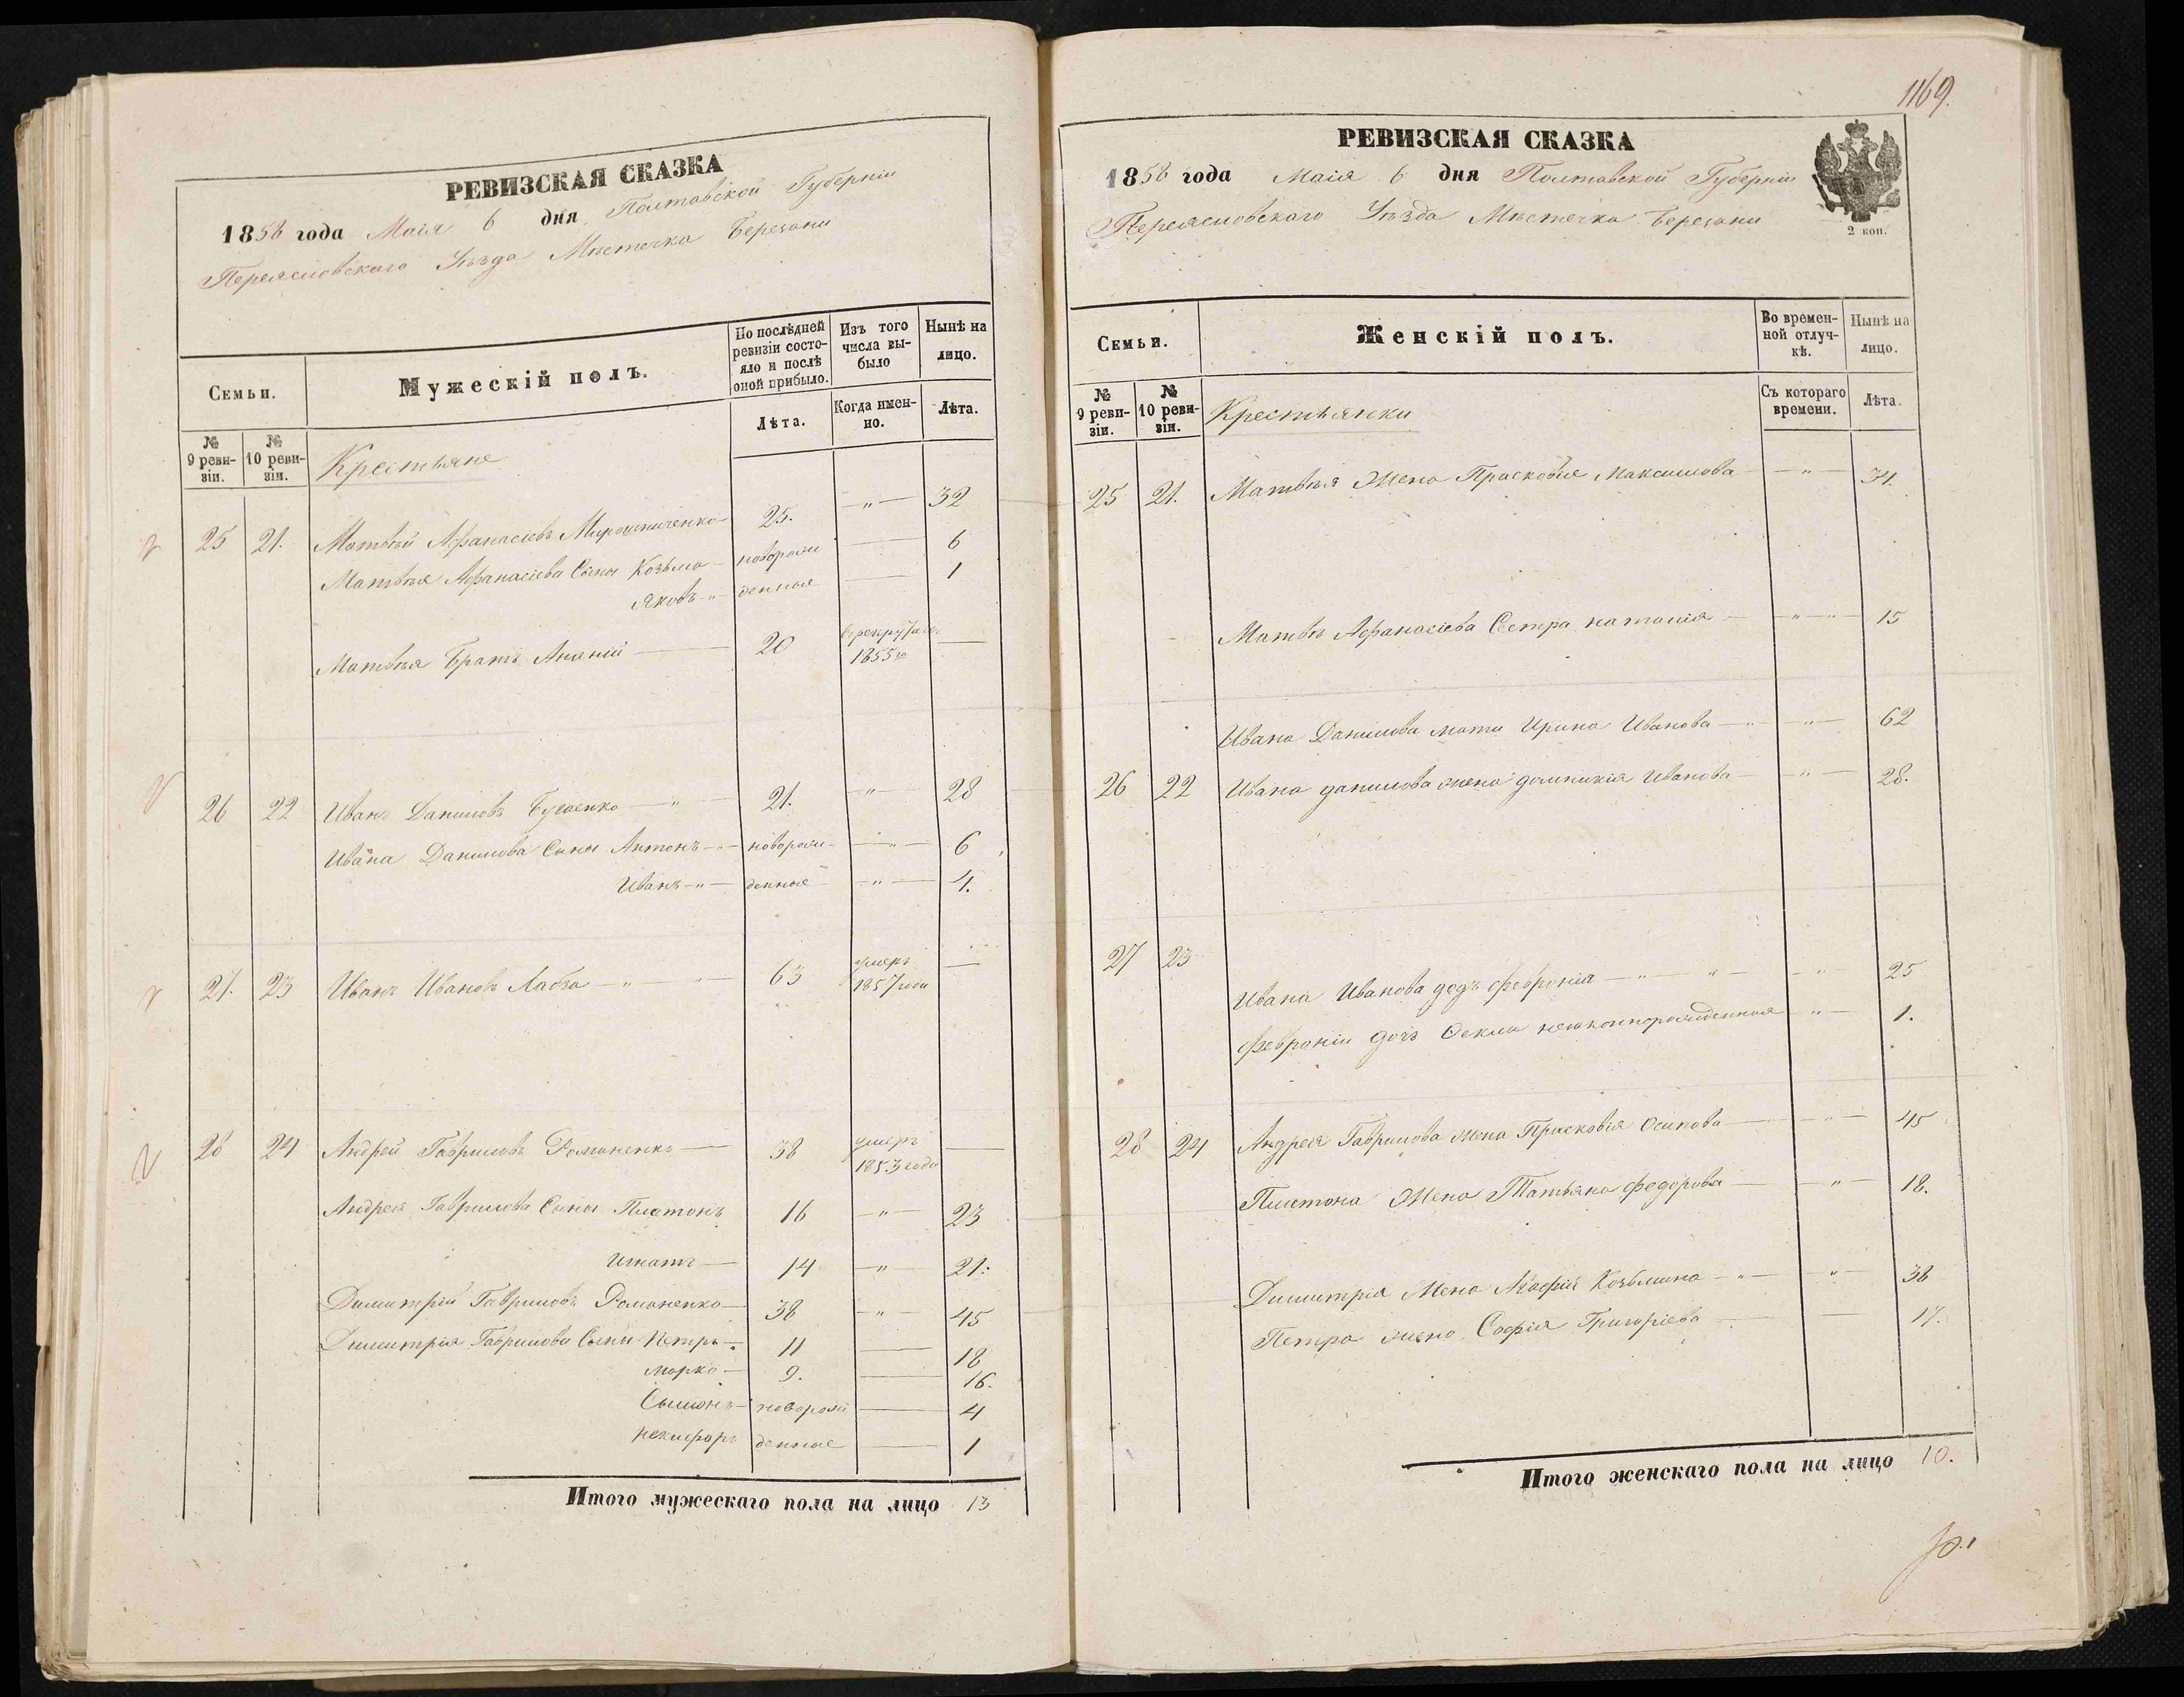 РЕВИЗСКАЯ СКАЗКА
1858 года Маія 6 дня Полтавской Губерніи
Переясловскаго Уѣзда Мѣстечка Березани
Семьи.
Мужескій полъ.
По послѣдней ревизіи состояло и послѣ оной прибыло.
Изъ того числа выбыло
Нынѣ на лицо.
№ 9 ревизіи.
№ 10 ревизіи.
Крестьяне
Лѣта.
Когда именно.
Лѣта.
25 21. Матвѣй Афанасіевъ Мирошниченко 25. — " — 32
Матвѣя Афанасіева Сыны Козьма — новорож 6
Яковъ — " — денные 1
Матвѣя Братъ Ананій 20 1855го —
26 22 Иванъ Даниловъ — " — 21. — " — 28
Ивана Данилова Сыны Антонъ — " — новорож — " — 6
Иванъ — " — денные — " — 4.
27. 23 Иванъ Ивановъ Лабза — " — 63 умеръ 1857 года —
28 24 Андрей Гавриловъ Романенко — 38 умеръ 1853 года —
Андрея Гаврилова Сыны Платонъ 16 — " — 23
Игнатъ — 14 — " — 21.
Димитрій Гавриловъ Романенко — 38 " 45
Димитрія Гаврилова Сыны Петръ — 11 — 18
Марко — 9. — 16.
Сымонъ — новорож — 4
Некифоръ денные — 1
Итого мужескаго пола на лицо 13
1169.
РЕВИЗСКАЯ СКАЗКА
1858 года Маія 6 дня Полтавской Губерніи
Переясловскаго Уѣзда Мѣстечка Березани
2 коп.
Семьи.
Женскій полъ.
Во временной отлучкѣ.
Нынѣ на лицо.
№ 9 ревизіи.
№ 10 ревизіи.
Крестьянки
Съ котораго времени.
Лѣта.
25 21. Матвѣя Жена Прасковія Максимова — " — 34.
Матвѣя Афанасіева Сестра Наталія — " — 15
Ивана Данилова мати Ирина Иванова — " — 62
26 22 Ивана Данилова жена Домникія Иванова — " — 28.
27 23
Ивана Иванова дочь Февронія — " — " — 25
Февроніи дочь Текла незаконнорожденная — " — 1.
28 24 Андрея Гаврилова жена Прасковія Осипова — " — 45
Платона Жена Татьяна Федорова — " — 18.
Димитрія Жена Агафія Козьмина — " — 38
Петра жена Софія Григоріева — 17.
Итого женскаго пола на лицо 10.